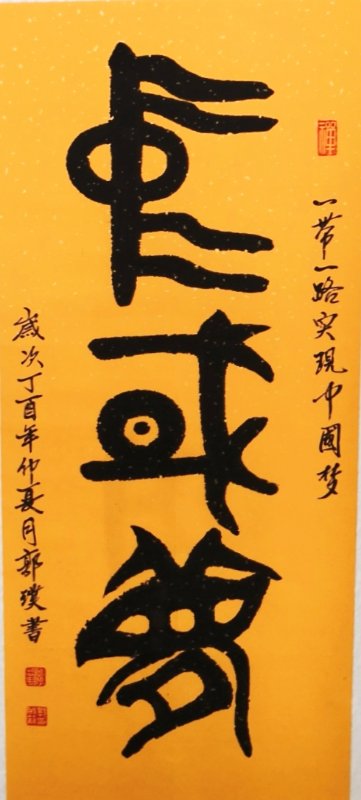 一带一路实现中國梦
中或夢
歲次丁酉年仲夏月郭璞書